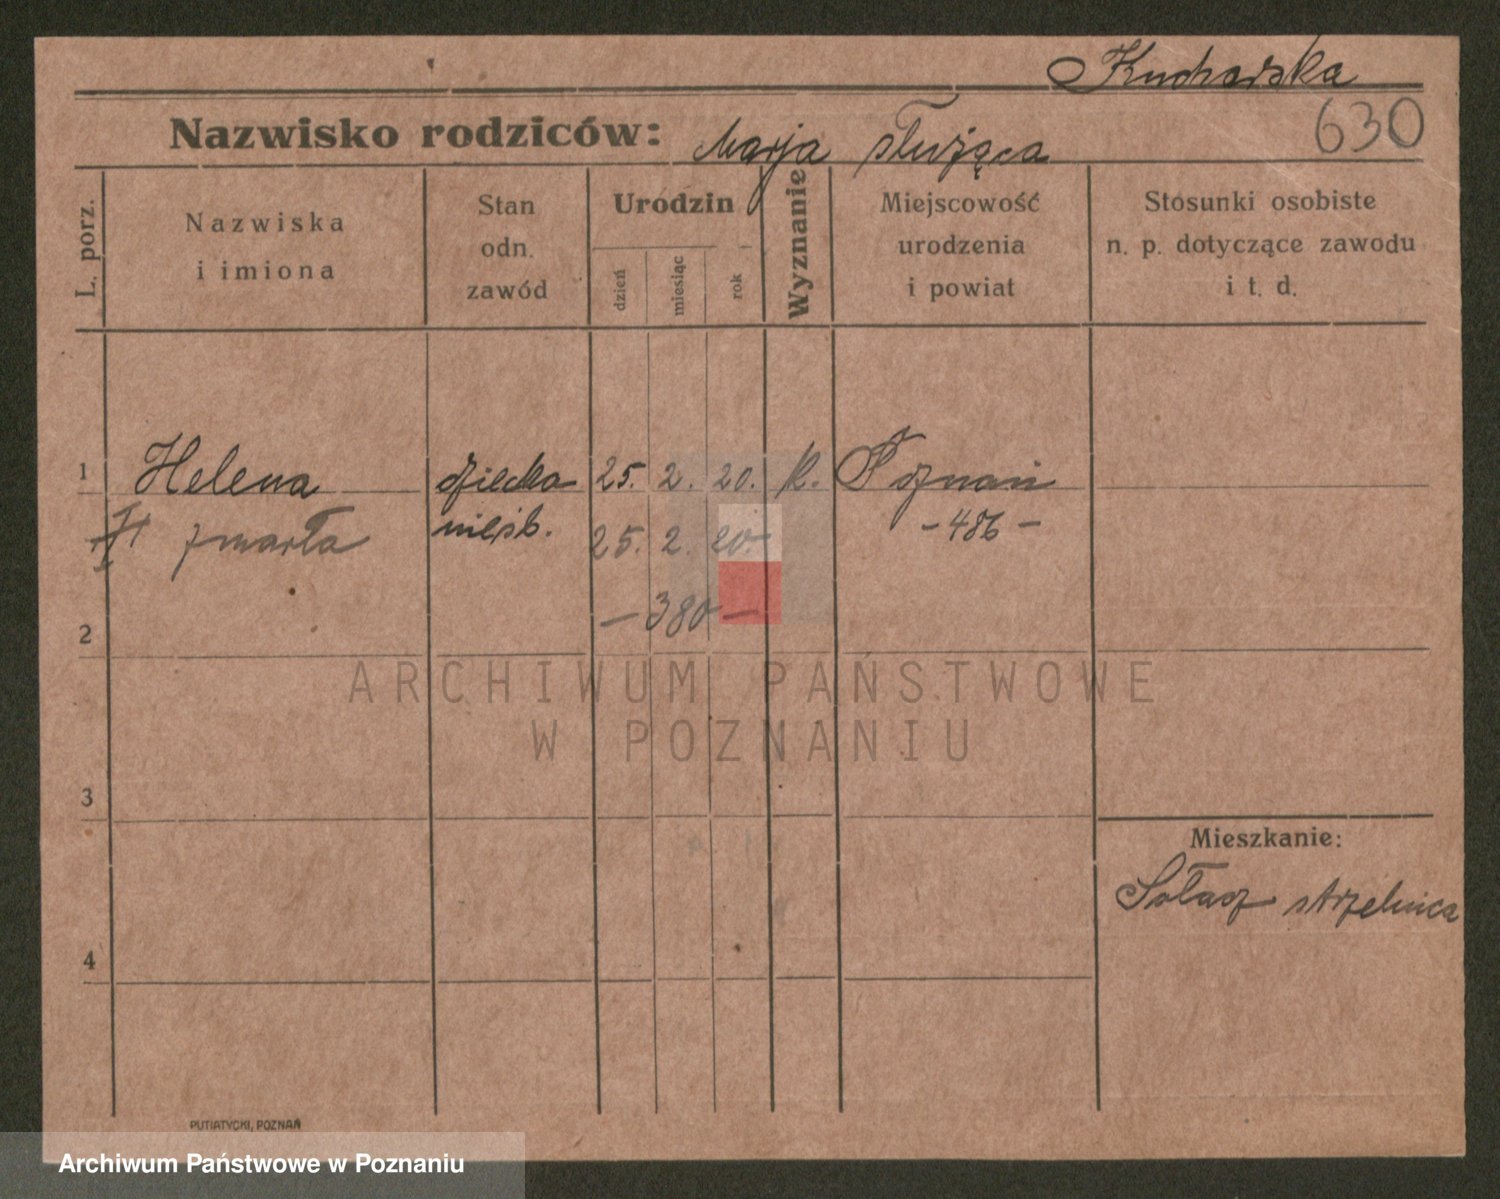 Kucharska
630
Nazwisko rodziców: Marja służąca
L. porz.
Nazwiska
i imiona
Stan
odn.
zawód
Urodzin
dzień
miesiąc
rok
Wyznanie
Miejscowość
urodzenia
i powiat
Stosunki osobiste
n. p. dotyczące zawodu
i t. d.
1 Helena dziecko 25. 2. 20. k. Poznań
zmarła nieśb. 25. 2. 20. - 486 -
- 380 -
2
ARCHIWUM PAŃSTWOWE
W POZNANIU
3
Mieszkanie:
Sołacz strzelnica
4
PUTIATYCKI, POZNAŃ
Archiwum Państwowe w Poznaniu